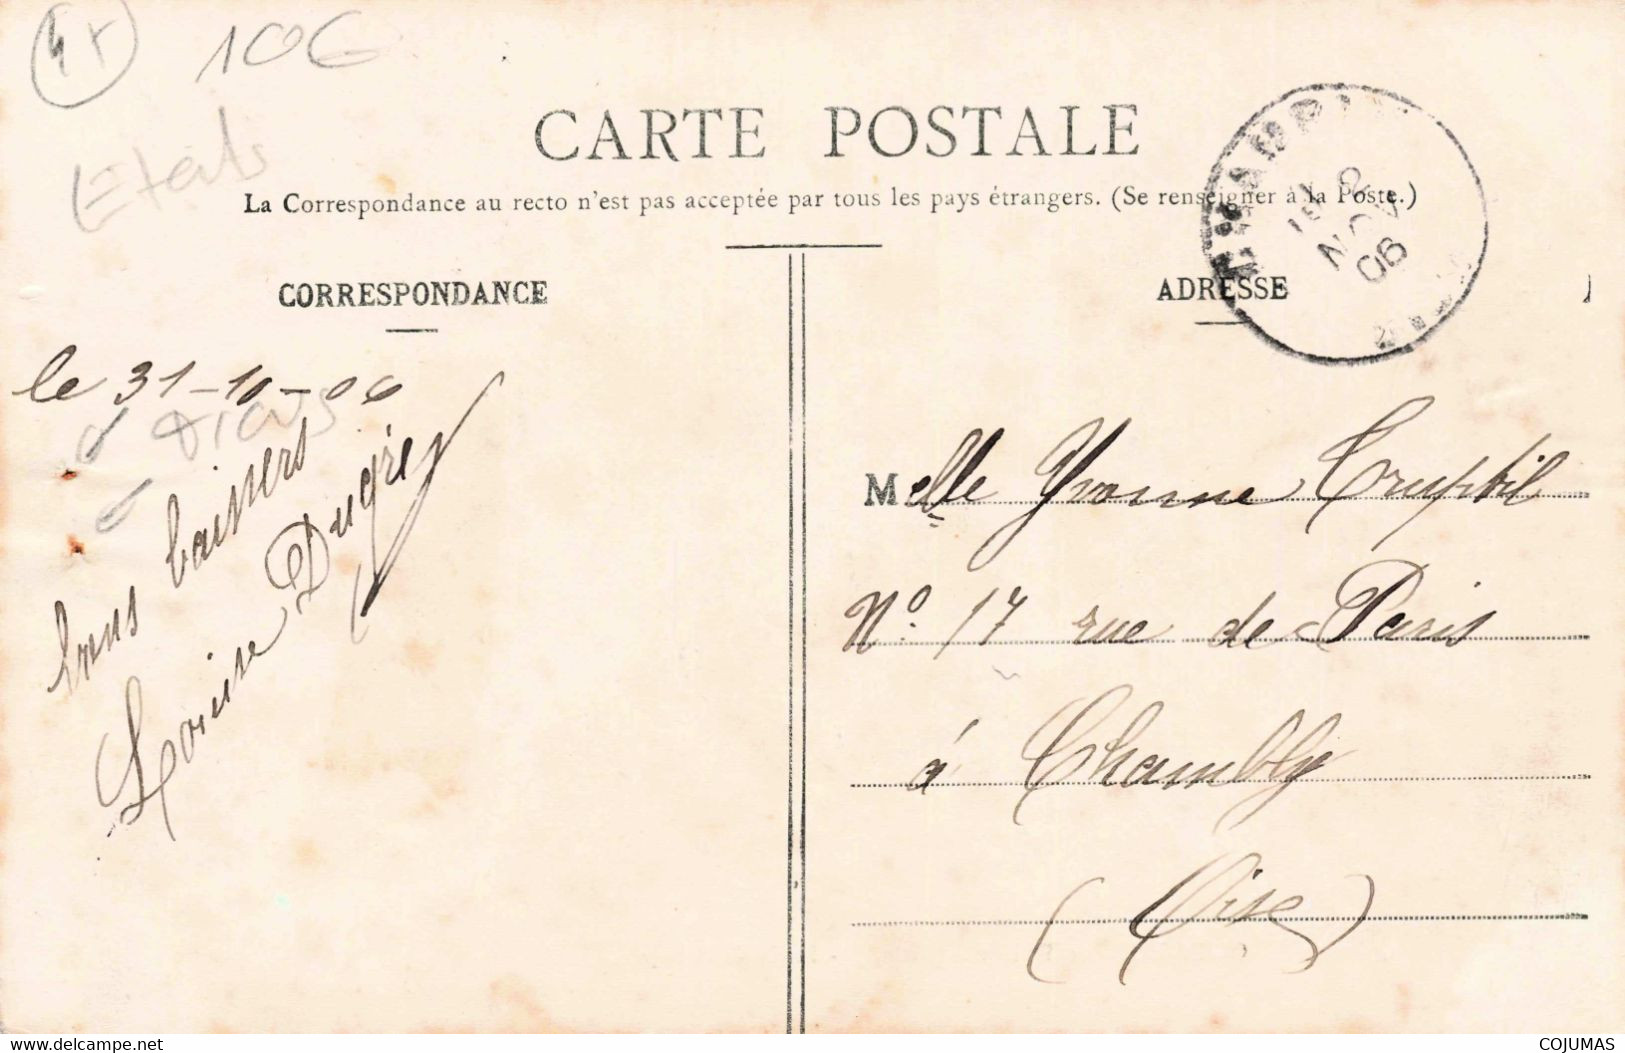 4x 10€
Etats
CARTE POSTALE
La Correspondance au recto n'est pas acceptée par tous les pays étrangers. (Se renseigner à la Poste.)
CORRESPONDANCE
le 31-10-06
bons baisers
Louise
ADRESSE
2
NOV
06
Melle Yvonne
No. 17 rue de Paris
à Chambly
(Oise)
www.delcampe.net
COJUMAS